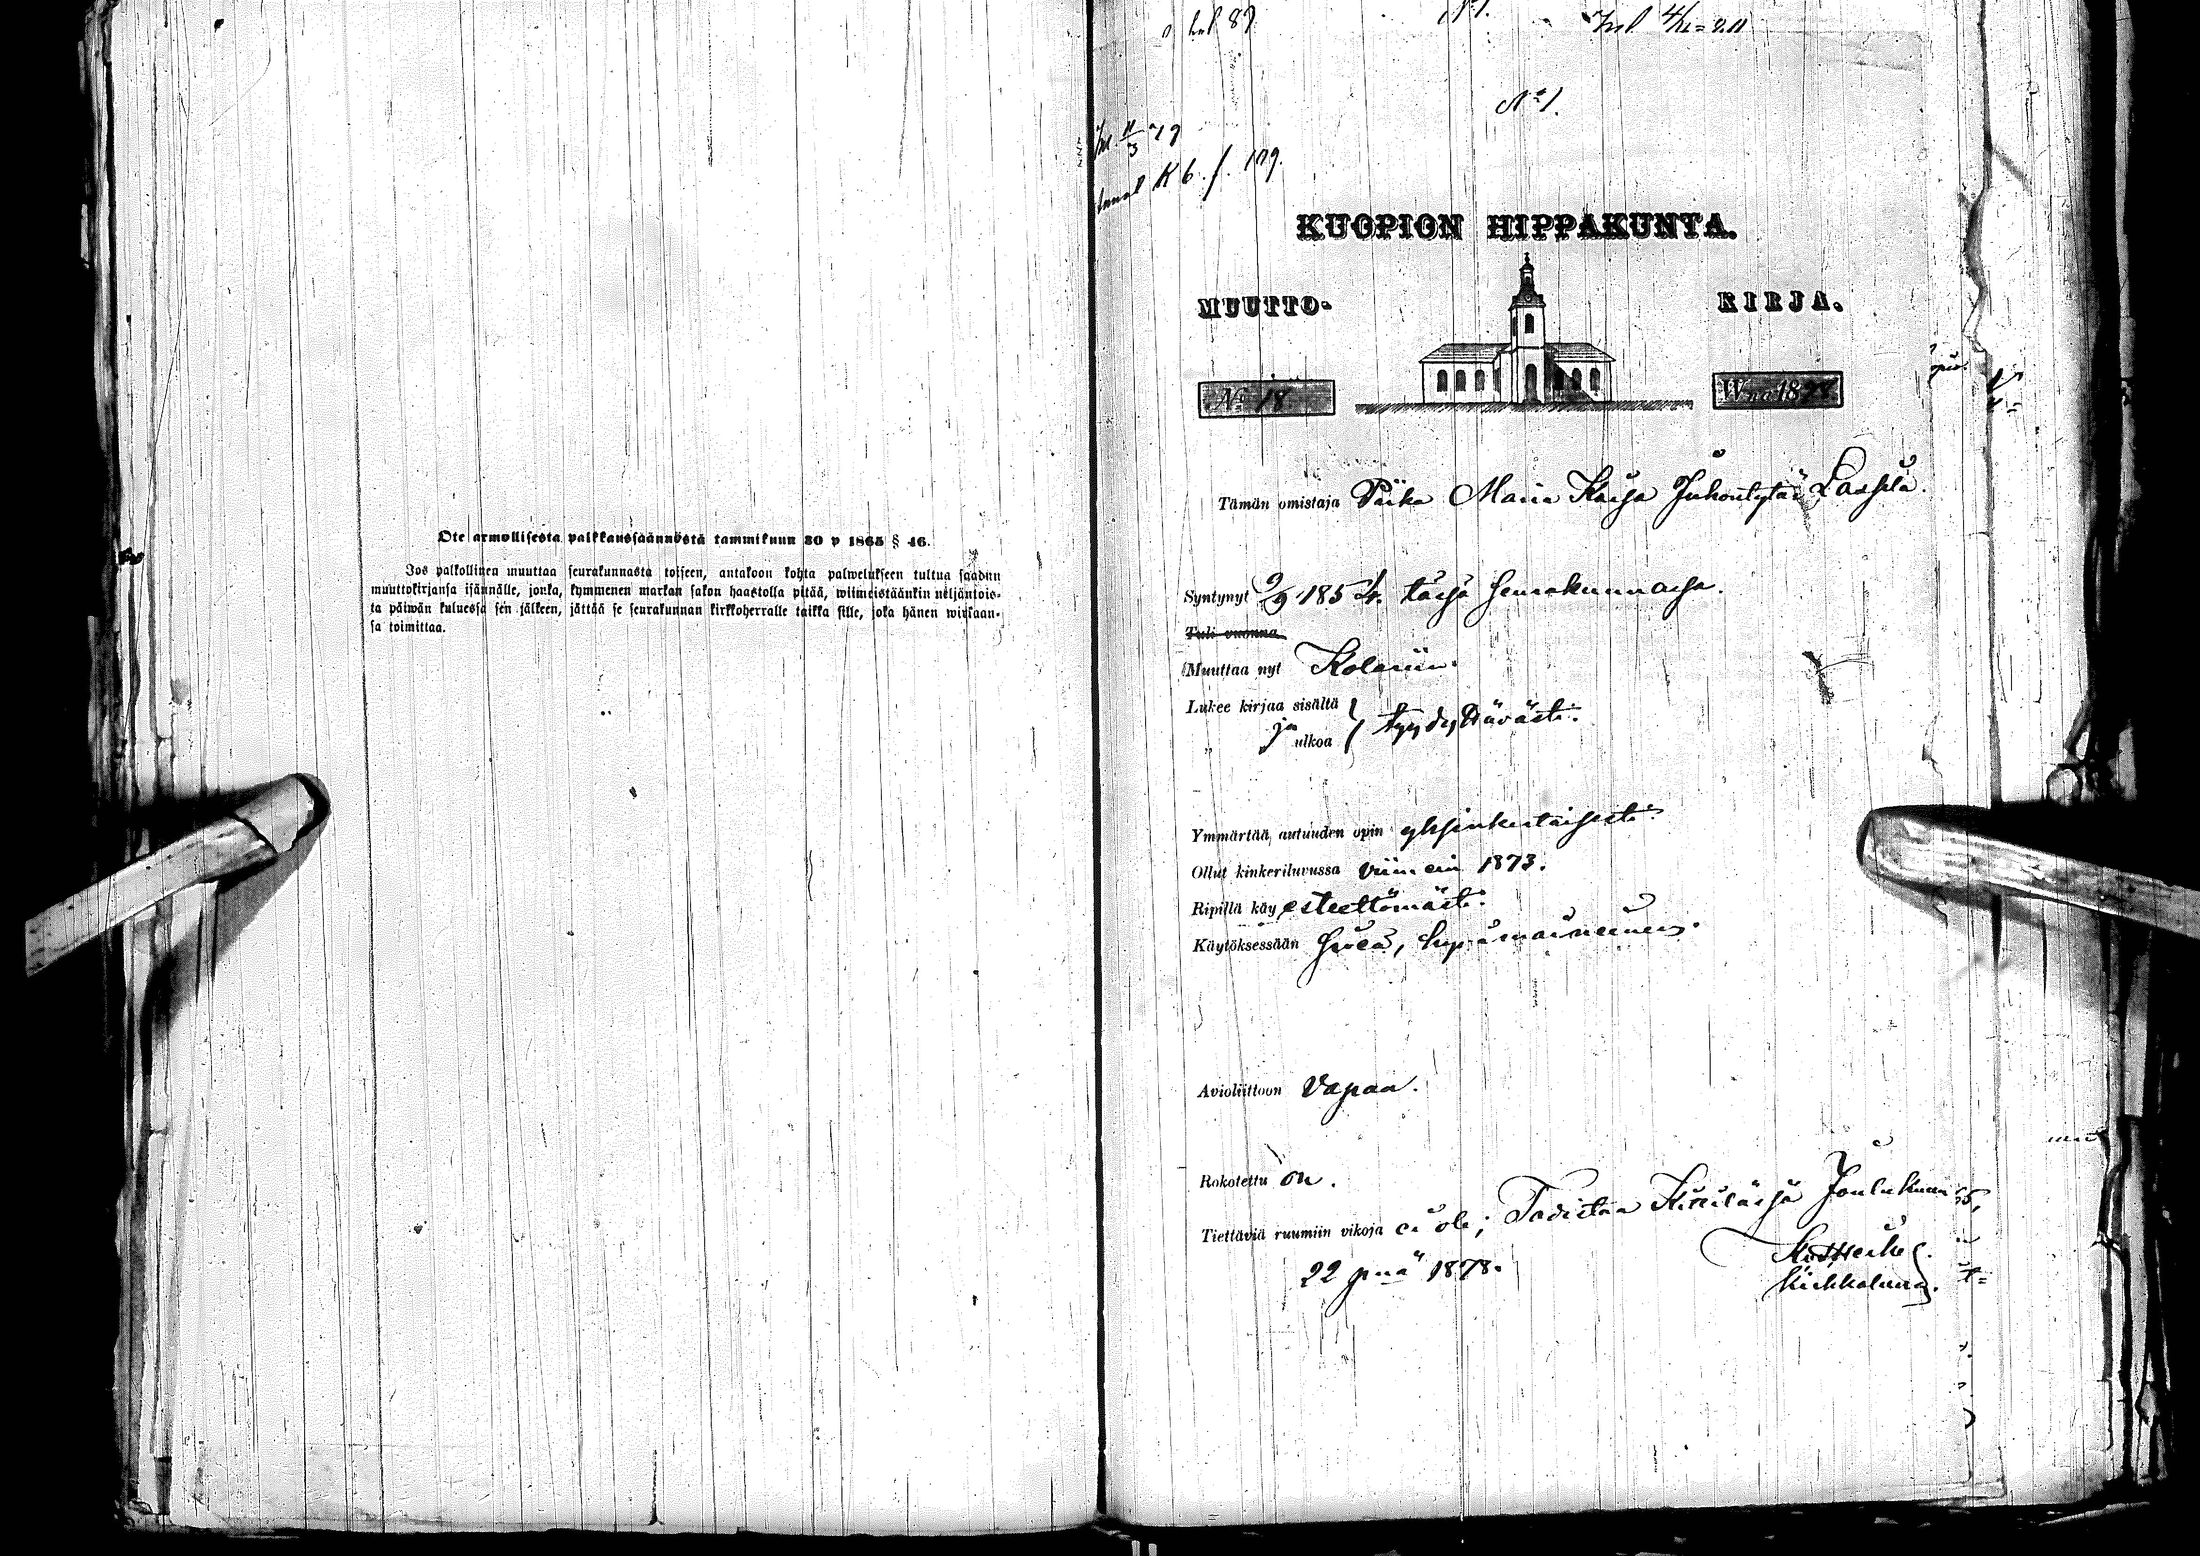 Ote armollisesta palkkaussäännöstä tammikuun 30 p 1865 § 46.
Jos palkollinen muuttaa seurakunnasta toiseen, antakoon kohta palwelukseen tultua saadun
muuttokirjansa isännälle, jonka, kymmenen markan sakon haastolla pitää, wiimeistäänkin neljäntois-
ta päiwän kuluessa sen jälkeen, jättää se seurakunnan kirkkoherralle taikka sille, joka hänen wirkaan-
sa toimittaa.
No 1.
K 6. f. 179.
KUOPION HIPPAKUNTA.
MUUTTO- KIRJA.
No 18
W:na 1878
Tämän omistaja Piika Maria Kaisa Juhontytär Lassila.
Syntynyt 2/9 1854. tässä seurakunnassa.
Tuli vuonna
Muuttaa nyt Kolariin.
Lukee kirjaa sisältä
" ja ulkoa } tyydyttävästi.
Ymmärtää autuuden opin yksinkertaisesti.
Ollut kinkeriluvussa viimein 1873.
Ripillä käy esteettömästi.
Käytöksessään siveä, hyvämaineinen.
Avioliittoon vapaa.
Rokotettu on.
Tiettäviä ruumiin vikoja ei ole; Todistaa Kittilässä Joulukuun
22 pnä 1878.
Kirkkoherra.